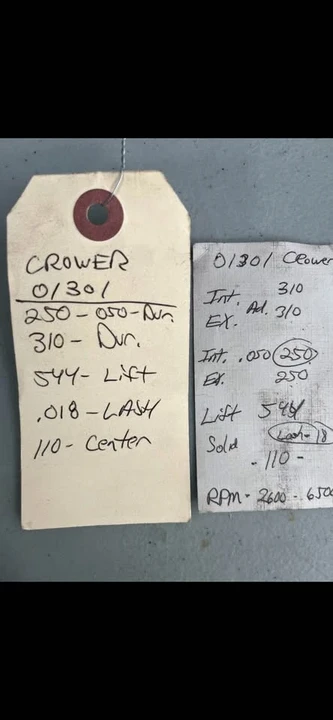 CROWER
01301
250-050-Dur.
310- Dur.
544- Lift
.018-LASH
110-Center
01301 Crower
Int. 310
EX. Ad. 310
Int. .050 250
Ex. 250
Lift 544
Solid Lash-18
-110-
RPM- 2600-6500